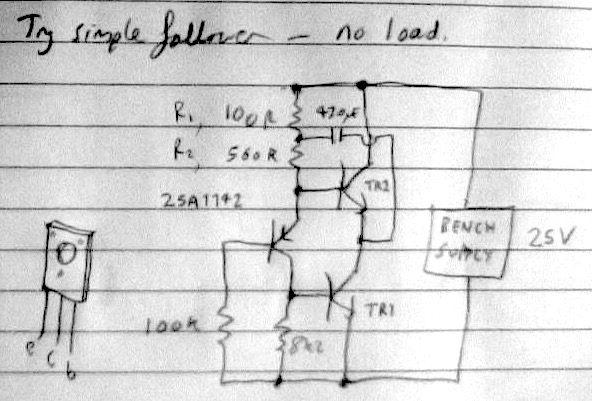 Try simple follower – no load.
R1, 100R 470µF
R2, 560R
2SA1142 TR2
BENCH SUPPLY 25V
100R TR1
8k2
e c b